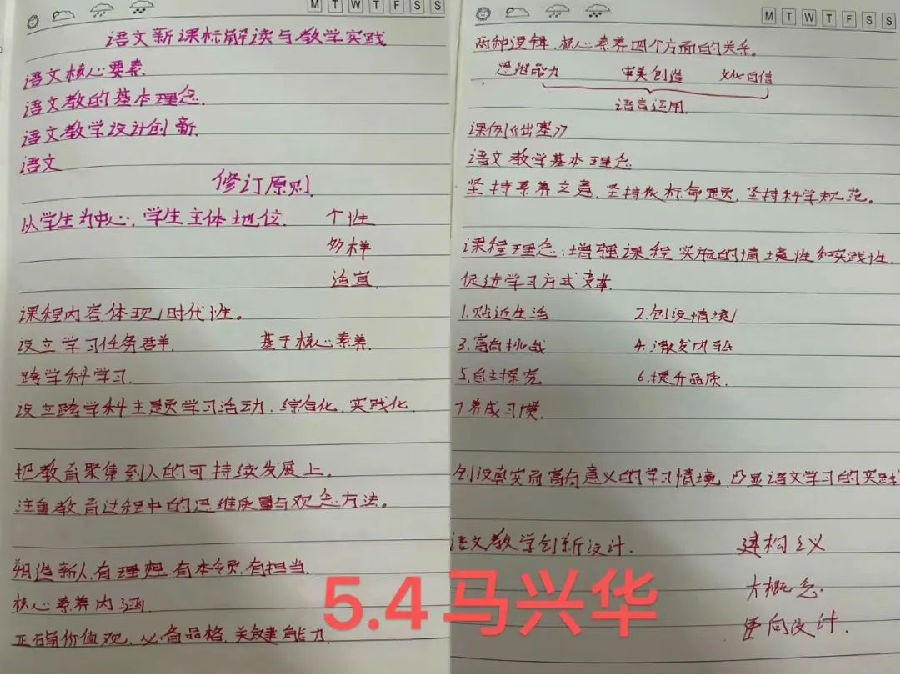 M T W T F S S
语文新课标解读与教学实践
语文核心要素
语文教的基本理念
语文教学设计创新
语文
修订原则
从学生为中心,学生主体地位. 个性
多样
适宜
课程内容体现时代性。
设立学习任务群 基于核心素养
跨学科学习
设立跨学科主题学习活动,综合化,实践化
把教育聚集到人的可持续发展上。
注重教育过程中的思维质量与观念方法。
塑造新人,有理想,有本领,有担当
核心素养内涵
正确价值观,必备品格,关键能力
M T W T F S S
核心素养四个方面的关系.
思维能力 审美创造 文化自信
语言运用
课例《出塞》
语文教学基本理念
坚持素养立意,坚持依标命题,坚持科学规范。
课程理念:增强课程实施的情境性和实践性
促进学习方式变革
1.贴近生活 2.创设情境
3.富有挑战 4.激发内驱
5.自主探究 6.提升品质.
7.养成习惯
创设真实而富有意义的学习情境,凸显语文学习的实践
语文教学创新设计. 建构主义
大概念.
逆向设计.
5.4马兴华